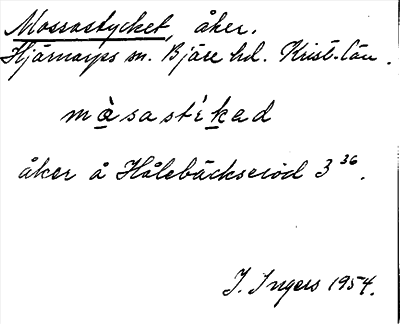 Mossastycket, åker.
Hjärnarps sn. Bjäre hd. Krist. län.
mɑ̀sastìkad
åker å Hålebäckseröd 3³⁶.
I. Ingers 1954.